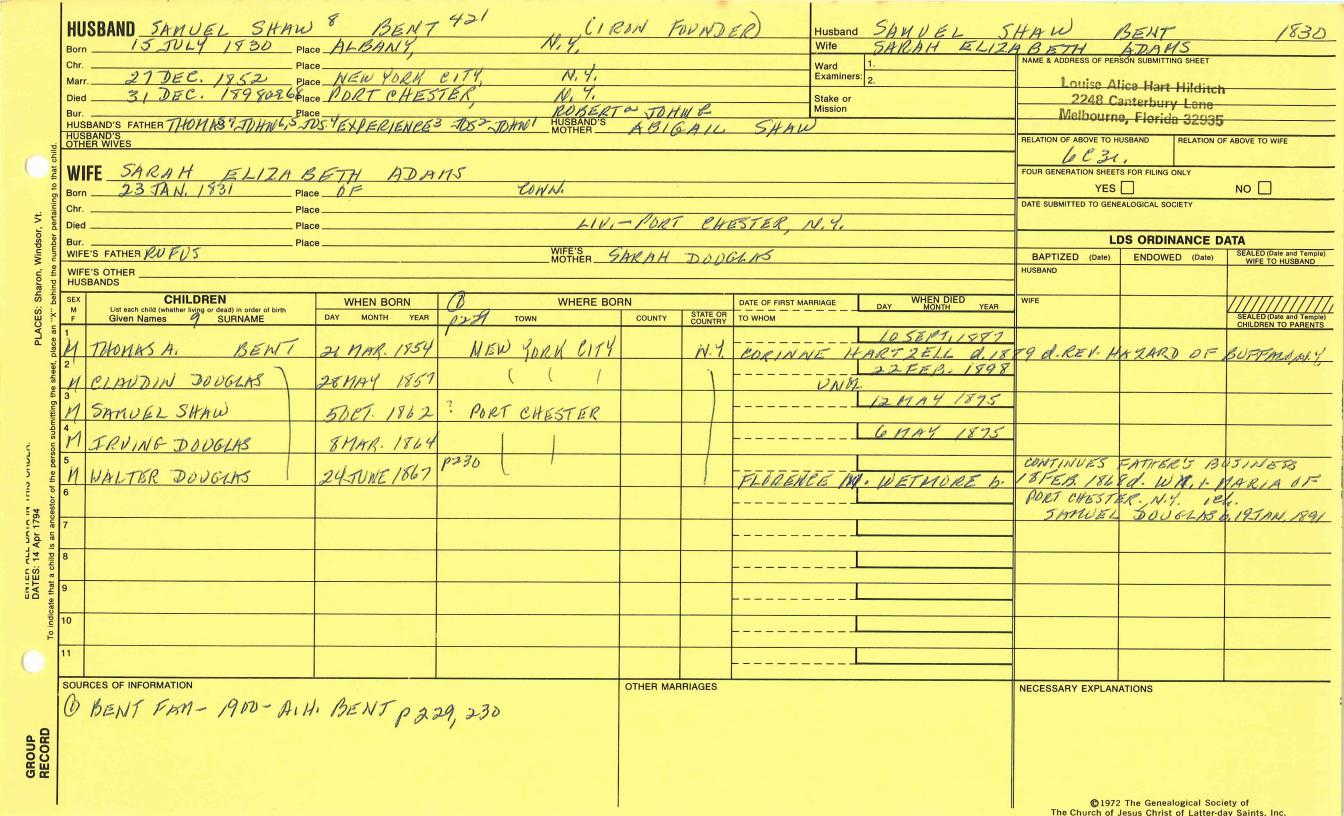 HUSBAND SAMUEL SHAW 8 BENT 421 (IRON FOUNDER)
Born 15 JULY 1830 Place ALBANY, N.Y.
Chr. Place
Marr. 27 DEC. 1852 Place NEW YORK CITY, N.Y.
Died 31 DEC. 1898 Place PORT CHESTER, N.Y.
Bur. Place
HUSBAND'S FATHER THOMAS JOHN JOS EXPERIENCE 3 JOS 2 JOHN 1 ROBERT JOHN HUSBAND'S MOTHER ABIGAIL SHAW
HUSBAND'S OTHER WIVES
WIFE SARAH ELIZABETH ADAMS
Born 23 JAN. 1831 Place OF CONN.
Chr. Place
Died Place LIV.- PORT CHESTER, N.Y.
Bur. Place
WIFE'S FATHER RUFUS WIFE'S MOTHER SARAH DOUGLAS
WIFE'S OTHER HUSBANDS
Husband SAMUEL SHAW BENT 1830
Wife SARAH ELIZABETH ADAMS
Ward Examiners: 1. 2.
Stake or Mission
NAME & ADDRESS OF PERSON SUBMITTING SHEET
Louise Alice Hart Hilditch
2248 Canterbury Lane
Melbourne, Florida 32935
RELATION OF ABOVE TO HUSBAND RELATION OF ABOVE TO WIFE
6C3r.
FOUR GENERATION SHEETS FOR FILING ONLY
YES NO
DATE SUBMITTED TO GENEALOGICAL SOCIETY
LDS ORDINANCE DATA
BAPTIZED (Date) ENDOWED (Date) SEALED (Date and Temple) WIFE TO HUSBAND
HUSBAND
WIFE
SEALED (Date and Temple) CHILDREN TO PARENTS
SEX M F CHILDREN WHEN BORN ① WHERE BORN DATE OF FIRST MARRIAGE WHEN DIED
List each child (whether living or dead) in order of birth
Given Names 9 SURNAME DAY MONTH YEAR p229 TOWN COUNTY STATE OR COUNTRY TO WHOM DAY MONTH YEAR
1 10 SEPT. 1887
M THOMAS A. BENT 21 MAR. 1854 NEW YORK CITY N.Y. CORINNE HARTZELL d. 1879 d. REV. HAZARD OF BUFFALO, N.Y.
2 22 FEB. 1898
M CLAUDIN DOUGLAS 28 MAY 1857 UNM.
3 12 MAY 1875
M SAMUEL SHAW 5 OCT. 1862 ? PORT CHESTER
4 6 MAY 1875
M IRVING DOUGLAS 8 MAR. 1864
5 p230 CONTINUES FATHER'S BUSINESS
M WALTER DOUGLAS 24 JUNE 1867 FLORENCE M. WETMORE b. 18 FEB. 1868 d. WM. & MARIA OF
6 PORT CHESTER. N.Y. 1ch.
SAMUEL DOUGLAS b. 19 JAN. 1891
7
8
9
10
11
SOURCES OF INFORMATION OTHER MARRIAGES NECESSARY EXPLANATIONS
① BENT FAM- 1900- A.H. BENT p 229, 230
©1972 The Genealogical Society of
The Church of Jesus Christ of Latter-day Saints, Inc.
PLACES: Sharon, Windsor, Vt.
DATES: 14 Apr 1794
To indicate that a child is an ancestor of the person submitting the sheet, place an "X" behind the number pertaining to that child.
GROUP RECORD